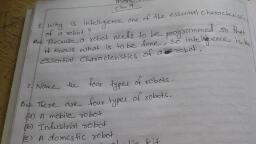 1. Why is intelligence one of the essential characteristics
of a robot?
Ans Because a robot needs to be programmed so that
it knows what is to be done, so intelligence is the
essential characteristics of a robot.
2. Name the four types of robots.
Ans There are four types of robots.
(a) A mobile robot
(b) Industrial robot
(c) A domestic robot
kit